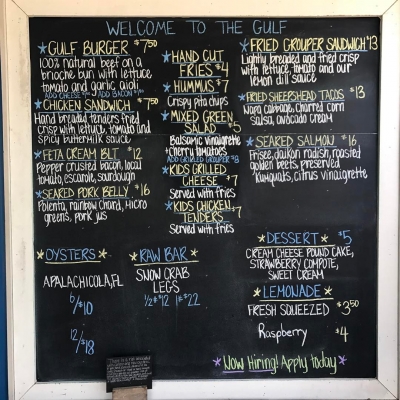 WELCOME TO THE GULF
GULF BURGER $7.50
100% natural beef on a
brioche bun with lettuce
tomato and garlic aioli
ADD CHEESE ADD BACON
CHICKEN SANDWICH $7.50
Hand breaded tenders fried
crisp with lettuce, tomato and
Spicy buttermilk sauce
FETA CREAM BLT $12
Pepper crusted bacon, local
tomato, escarole, sourdough
SEARED PORK BELLY $16
Polenta, rainbow chard, micro
greens, pork jus
HAND CUT
FRIES $4
HUMMUS $7
Crispy pita chips
MIXED GREEN
SALAD $5
Balsamic vinaigrette
cherry tomatoes
ADD GRILLED GROUPER $8
KIDS GRILLED
CHEESE $7
Served with fries
KIDS CHICKEN
TENDERS $7
Served with fries
FRIED GROUPER SANDWICH $13
Lightly breaded and fried crisp
with lettuce, tomato and our
lemon dill sauce
FRIED SHEEPSHEAD TACOS $13
Napa cabbage, charred corn
salsa, avocado cream
SEARED SALMON $16
Frisee, daikon radish, roasted
golden beets, preserved
kumquats, citrus vinaigrette
OYSTERS
APALACHICOLA, FL
6/$10
12/$18
RAW BAR
SNOW CRAB
LEGS
1/2# $12 1# $22
DESSERT $5
CREAM CHEESE POUND CAKE,
STRAWBERRY COMPOTE,
SWEET CREAM
LEMONADE
FRESH SQUEEZED $3.50
Raspberry $4
Now Hiring! Apply today